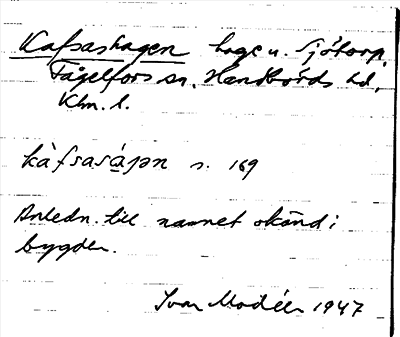 Kafsashagen hage u. Sjötorp,
Fågelfors sn, Handbörds hd,
Klm. l.
kàfsasá̱gən s. 169
Anledn. till namnet okänd i
bygden.
Ivar Modéer 1947